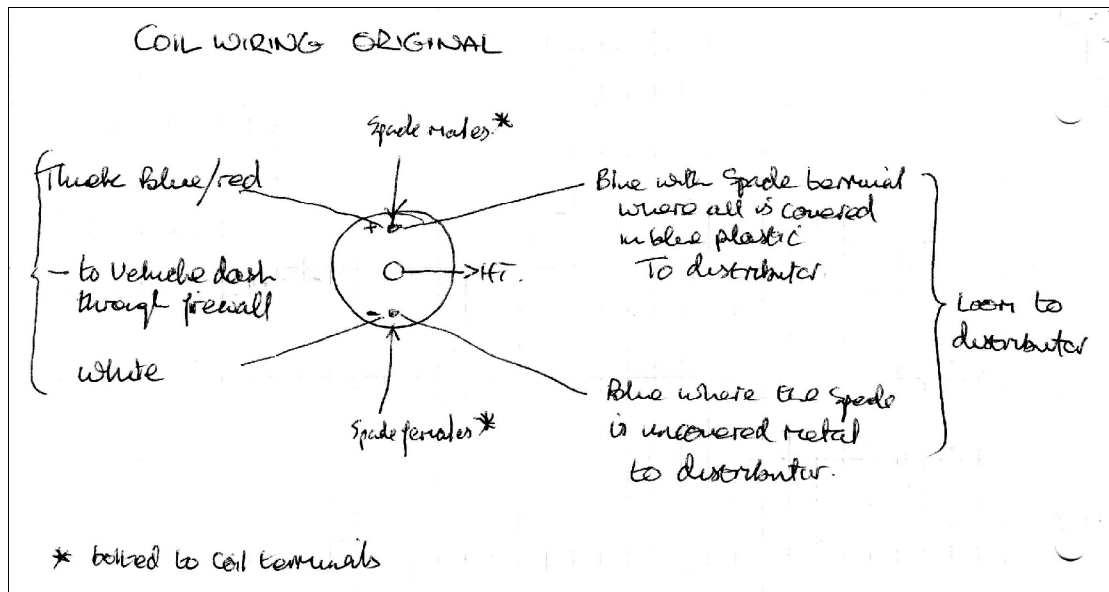 COIL WIRING ORIGINAL
Spade males *
Thick Blue/red
- to Vehicle dash
through firewall
White
+
HT.
-
Spade females *
Blue with Spade terminal
where all is covered
in blue plastic
To distributor
Blue where the spade
is uncovered metal
to distributor.
Loom to
distributor
* bolted to coil terminals